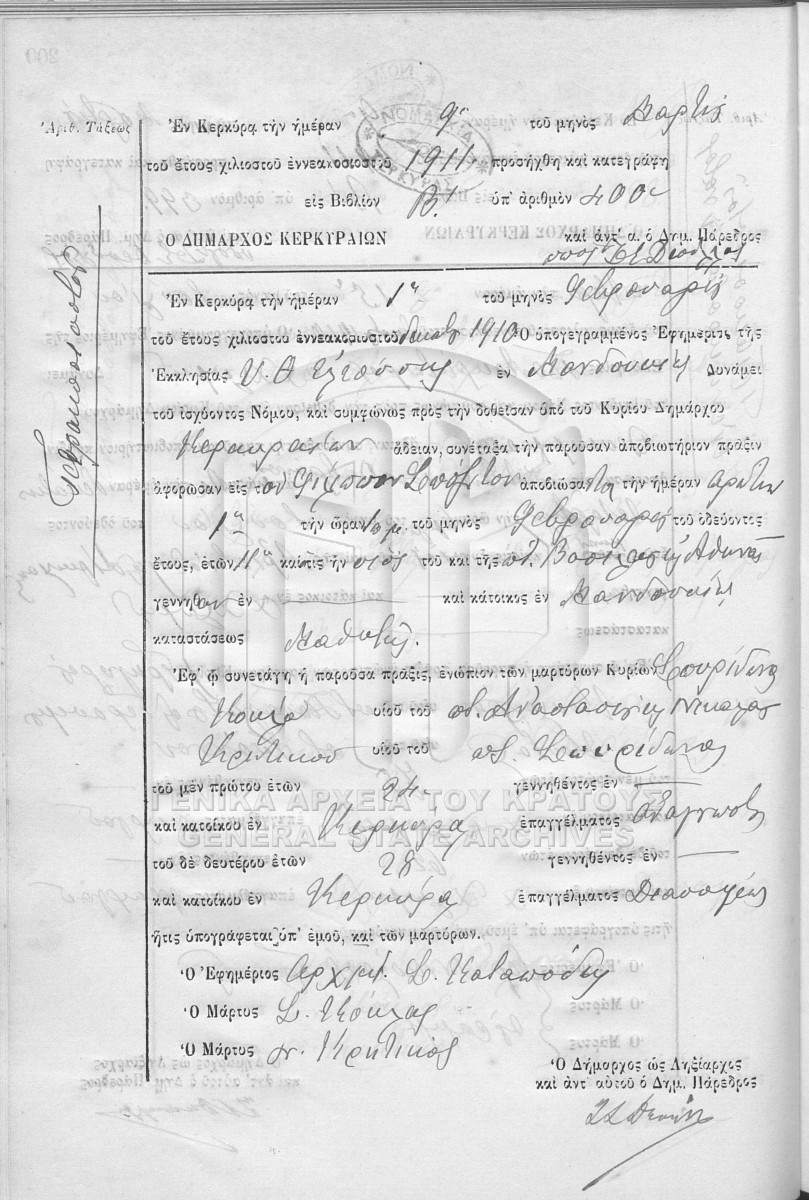 Ἀριθ. Τάξεως
Τετρακόσια
Ἐν Κερκύρᾳ τὴν ἡμέραν 9η τοῦ μηνὸς Μαρτίου
τοῦ ἔτους χιλιοστοῦ ἐννεακοσιοστοῦ 1911 προσήχθη καὶ κατεγράφη
εἰς Βιβλίον Β! ὑπ' ἀριθμὸν 400
Ο ΔΗΜΑΡΧΟΣ ΚΕΡΚΥΡΑΙΩΝ καὶ ἀντ' α. ὁ Δημ. Πάρεδρος
Ἐν Κερκύρᾳ τὴν ἡμέραν 1η τοῦ μηνὸς Φεβρουαρίου
τοῦ ἔτους χιλιοστοῦ ἐννεακοσιοστοῦ δεκάτου 1910 Ὁ ὑπογεγραμμένος Ἐφημέριος τῆς
Ἐκκλησίας Υ. Θ. Ελεούσης ἐν Μανδουκίῳ δυνάμει
τοῦ ἰσχύοντος Νόμου, καὶ συμφώνως πρὸς τὴν δοθεῖσαν ὑπὸ τοῦ Κυρίου Δημάρχου
Κερκυραίων ἄδειαν, συνέταξα τὴν παροῦσαν ἀποβιωτήριον πρᾶξιν
ἀφορῶσαν εἰς τὸν Φίλιππον ἀποβιώσαντα τὴν ἡμέραν
1η τὴν ὥραν τοῦ μηνὸς Φεβρουαρίου τοῦ ὁδεύοντος
ἔτους, ἐτῶν 11 καὶ τις ἦν υἱὸς τοῦ καὶ τῆς Ἀθηνᾶς
γεννηθὲν ἐν — καὶ κάτοικος ἐν Μανδουκίῳ
καταστάσεως Μαθητής.
Ἐφ' ᾧ συνετάγη ἡ παροῦσα πρᾶξις, ἐνώπιον τῶν μαρτύρων Κυρίων Σπυρίδωνα
Κόκλα υἱοῦ τοῦ ποτ. Αναστασίου Νικολάου
Κρητικοῦ υἱοῦ τοῦ ποτ. Σπυρίδωνος
τοῦ μὲν πρώτου ἐτῶν 24 γεννηθέντος ἐν —
καὶ κατοίκου ἐν Κερκύρᾳ ἐπαγγέλματος Αναγνώστου
τοῦ δὲ δευτέρου ἐτῶν 28 γεννηθέντος ἐν —
καὶ κατοίκου ἐν Κερκύρᾳ ἐπαγγέλματος
ἥτις ὑπογράφεται ὑπ' ἐμοῦ, καὶ τῶν μαρτύρων.
Ὁ Ἐφημέριος Αρχιμ. Σ. Καταπόδης
Ὁ Μάρτυς Σ. Κόκλας
Ὁ Μάρτυς Ν. Κρητικός
Ὁ Δήμαρχος ὡς Ληξίαρχος
καὶ ἀντ' αὐτοῦ ὁ Δημ. Πάρεδρος
ΓΕΝΙΚΑ ΑΡΧΕΙΑ ΤΟΥ ΚΡΑΤΟΥΣ
GENERAL STATE ARCHIVES